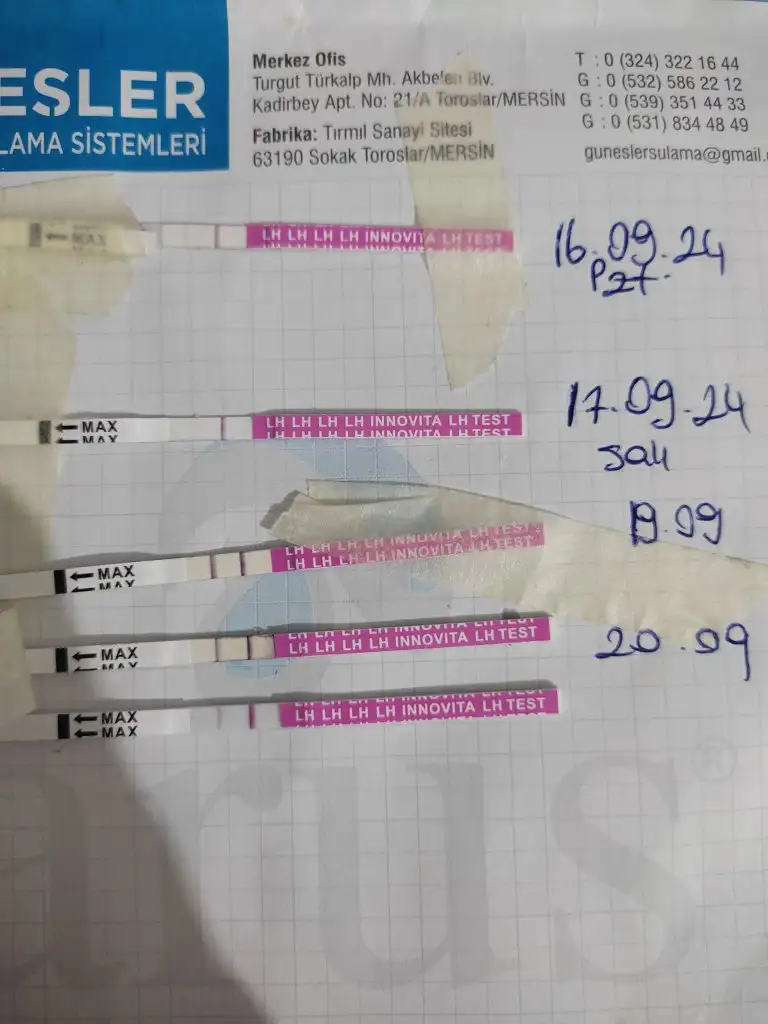 ESLER
LAMA SİSTEMLERİ
Merkez Ofis
Turgut Türkalp Mh. Akbelen Blv.
Kadirbey Apt. No: 21/A Toroslar/MERSİN
Fabrika: Tırmıl Sanayi Sitesi
63190 Sokak Toroslar/MERSİN
T : 0 (324) 322 16 44
G : 0 (532) 586 22 12
G : 0 (539) 351 44 33
G : 0 (531) 834 48 49
guneslersulama@gmail.
MAX
LH LH LH LH INNOVITA LH TEST
16.09.24
Pzt.
MAX
MAX
LH LH LH LH INNOVITA LH TEST
LH LH LH LH INNOVITA LH TEST
17.09.24
Salı
19.09
MAX
MAX
LH LH LH LH INNOVITA LH TEST
LH LH LH LH INNOVITA LH TEST
20.09
MAX
MAX
LH LH LH LH INNOVITA LH TEST
LH LH LH LH INNOVITA LH TEST
MAX
MAX
LH LH LH LH INNOVITA LH TEST
LH LH LH LH INNOVITA LH TEST
arus®